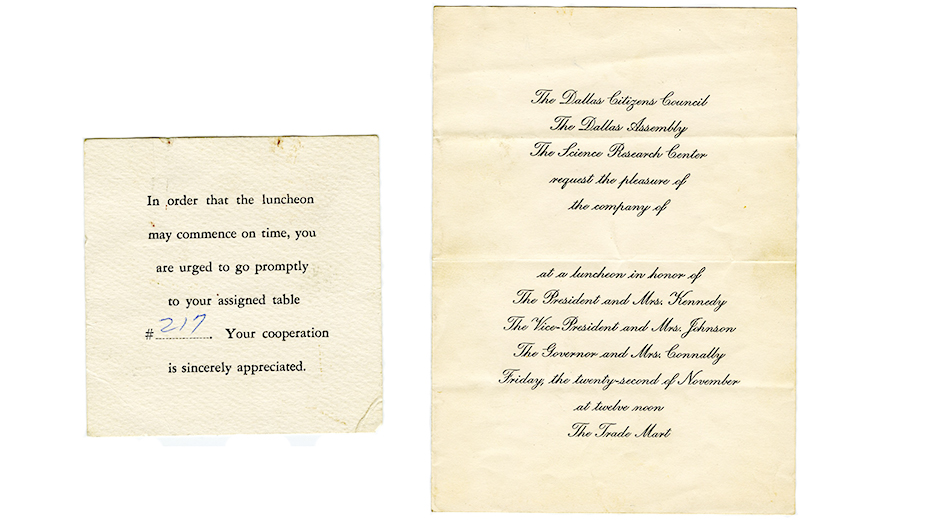 In order that the luncheon
may commence on time, you
are urged to go promptly
to your assigned table
# 217. Your cooperation
is sincerely appreciated.
The Dallas Citizens Council
The Dallas Assembly
The Science Research Center
request the pleasure of
the company of
at a luncheon in honor of
The President and Mrs. Kennedy
The Vice-President and Mrs. Johnson
The Governor and Mrs. Connally
Friday, the twenty-second of November
at twelve noon
The Trade Mart